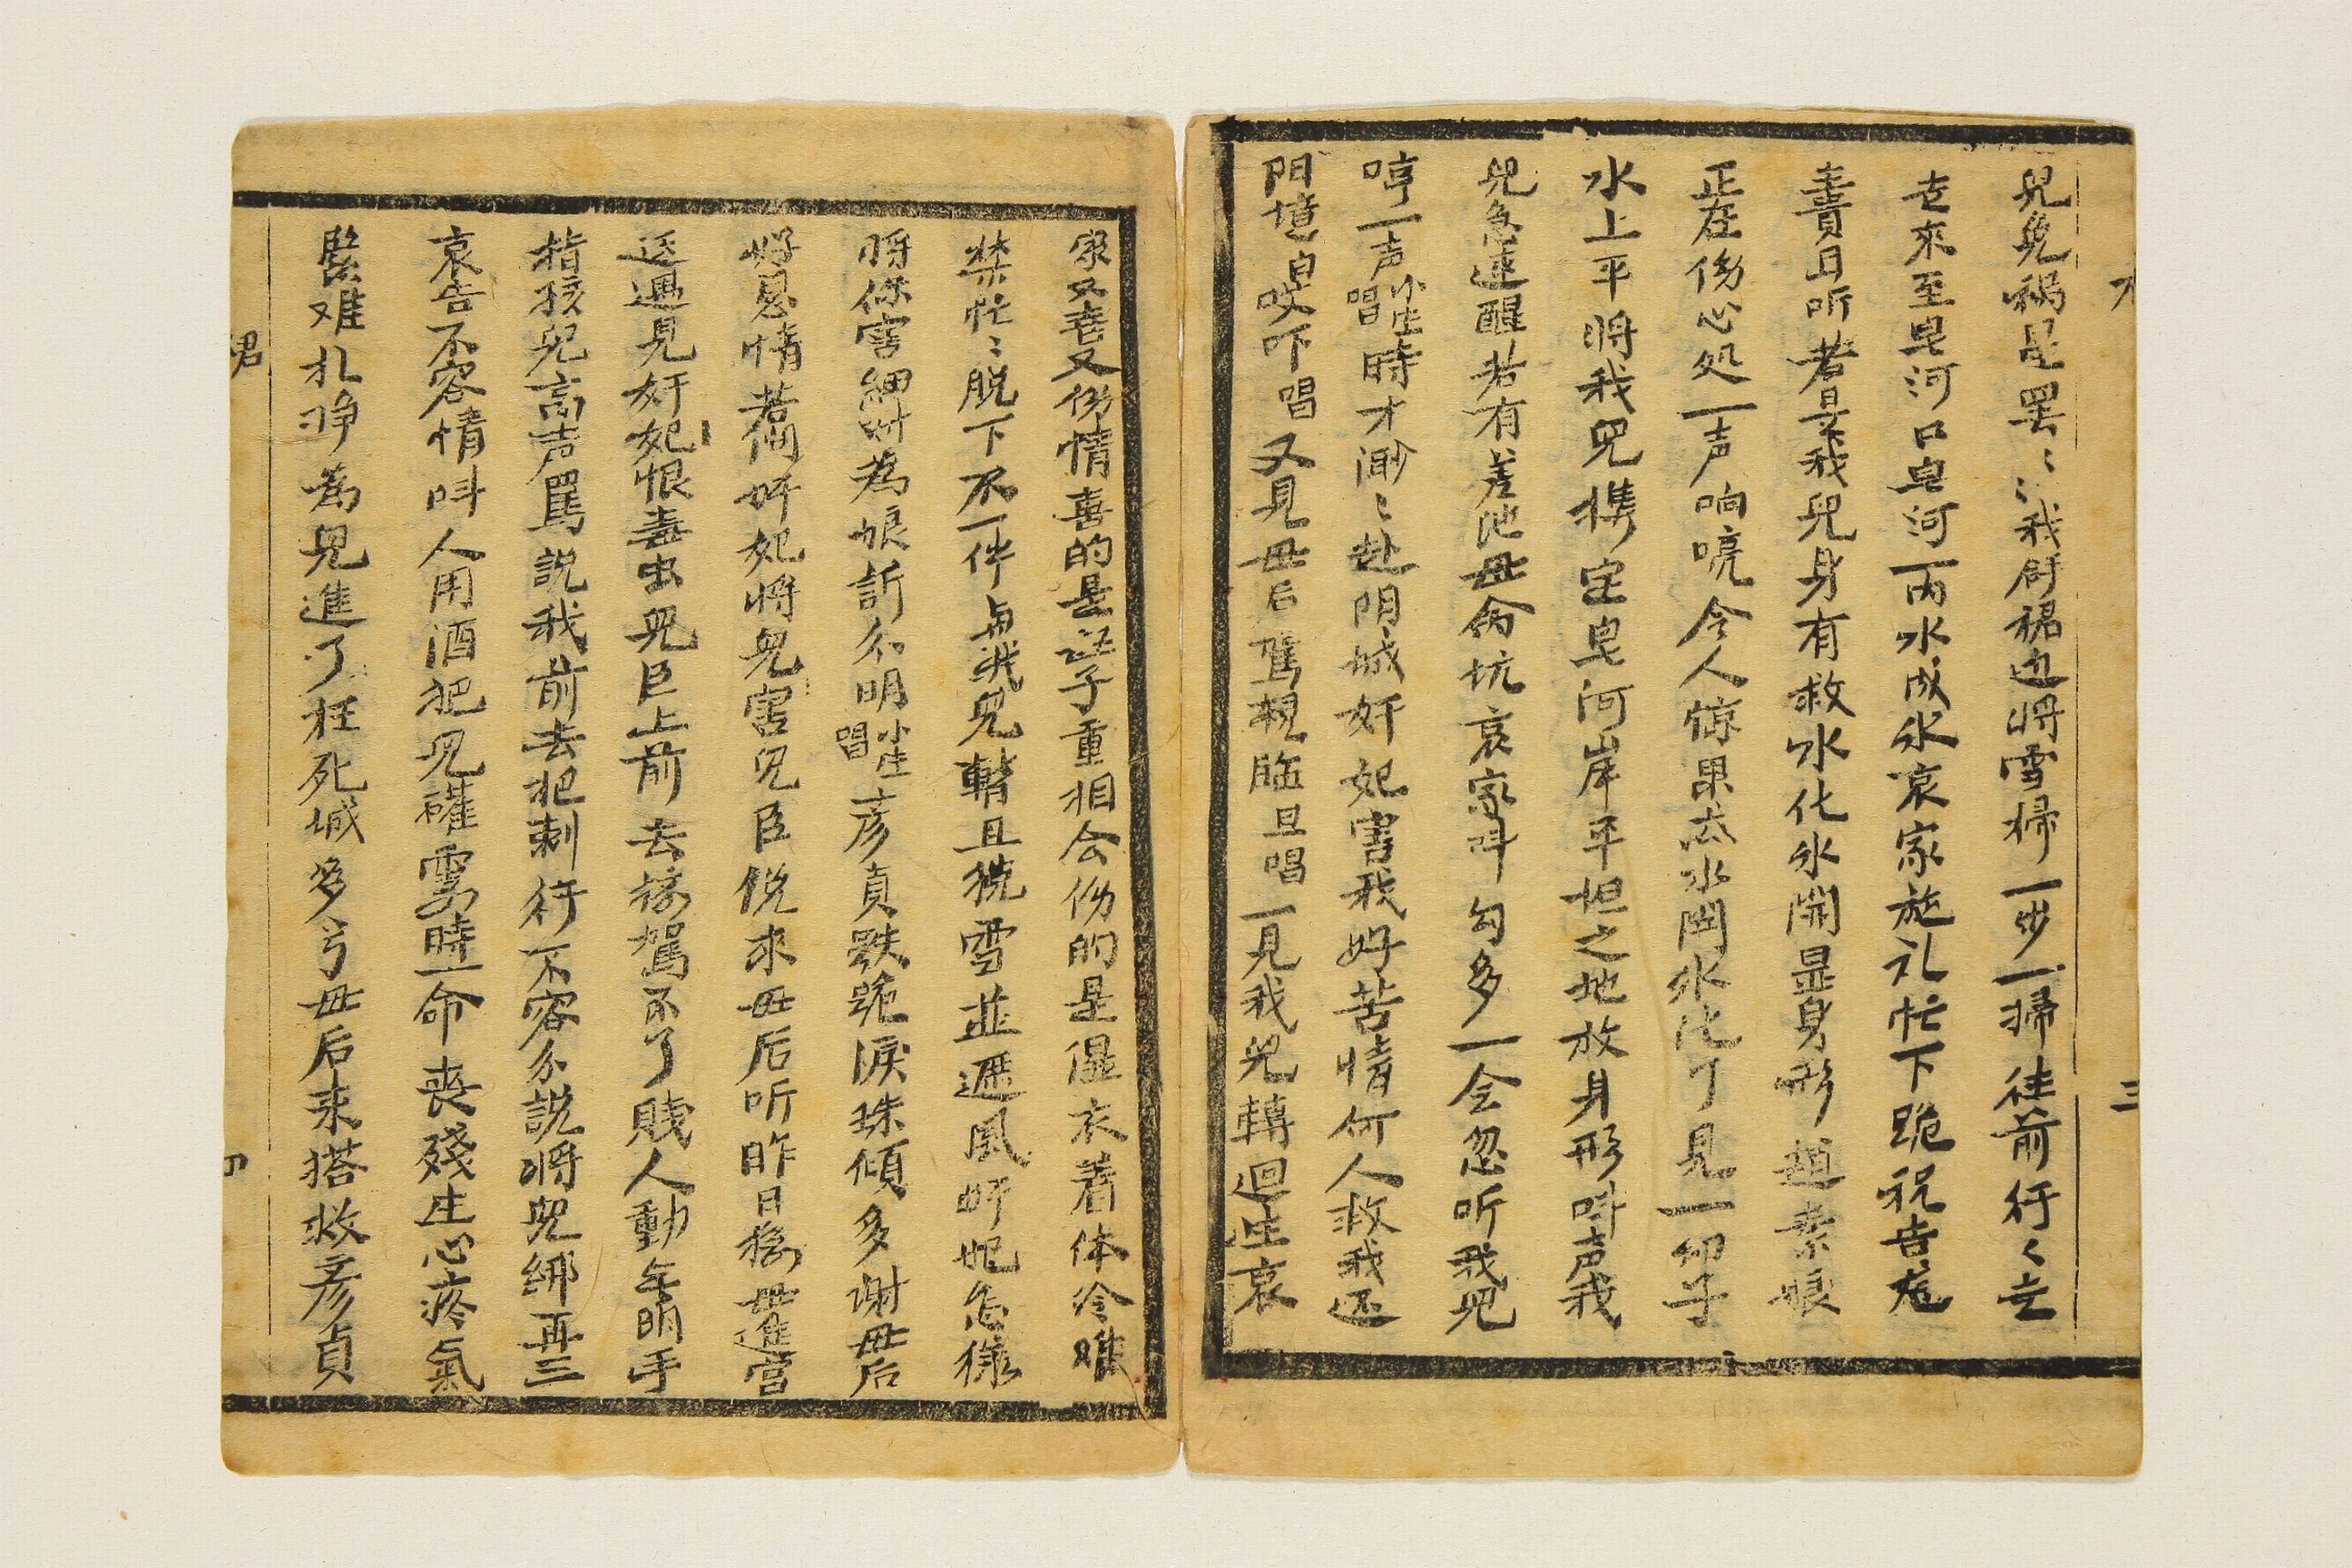 兒免禍是罢〻〻我用裙边将雪掃一步一掃往前行〻去
去來至皂河口皂河丙水成氷哀家施礼忙下跪祝告龙
王且听着是我兒身有救水化氷開显身形赵素娘
正在伤心処一声响喨令人惊果然氷開氷化了見一卬子
水上平将我兒携定皂河岸平坦之地放身形呌声我
兒急速醒若有差池母命坑哀家呌勾多一会忽听我児
哼一声小生唱時才渺〻赴阴城奸妃害我好苦情何人救我还
阳境白哎吓唱又見母后驾親临旦唱一見我兒轉迴生哀
家又喜又伤情喜的是母子重相会伤的是湿衣着体冷难
禁忙〻脱下不一件與我兒暫且挽雪並遮風奸妃怎樣
将你害細対為娘訢分明小生唱彦貞跌跪淚珠傾多谢母后
好恩情惹惱奸妃将兒害兒臣悦來母后听昨日孩母進宫
送過見奸妃恨毒虫兒臣上前去接駕不了賎人動無明手
指孩兒高声罵説我前去把刺行不容分説将兒綁再三
哀告不容情呌人用酒把兒灌霎時一命丧残生心疼氣
緊难扎挣為兒進了枉死城多亏母后来搭救彦貞